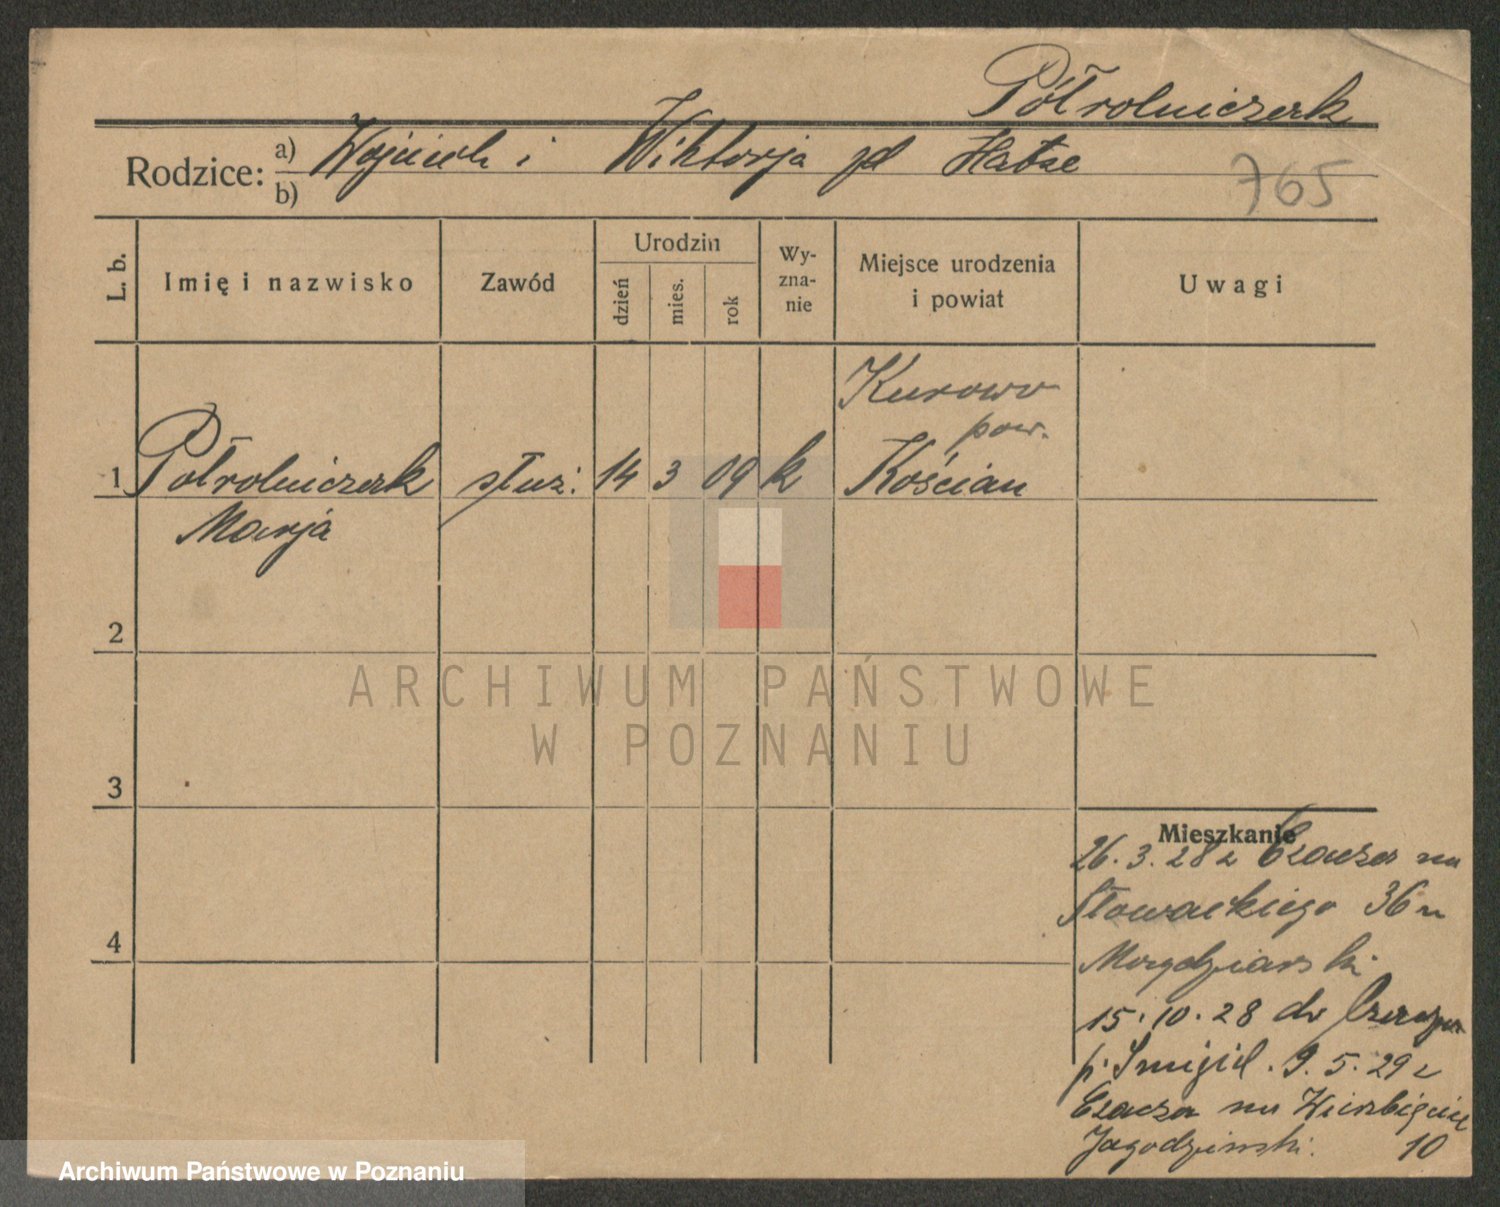 Półrolniczak
Rodzice: a) Wojciech i Wiktorja zd Hatze
b)
765
L. b.
Imię i nazwisko
Zawód
Urodzin
dzień
mies.
rok
Wy-
zna-
nie
Miejsce urodzenia
i powiat
Uwagi
Kurowo
pow.
1 Półrolniczak służ. 14 3 09 k Kościan
Marja
2
ARCHIWUM PAŃSTWOWE
W POZNANIU
3
4
Mieszkanie
26.3.28 z Czacza na
Słowackiego 36 u
15.10.28 do
p. Śmigiel. 9.5.29 z
Czacza na Wierzbięcice
Jagodzinski. 10
Archiwum Państwowe w Poznaniu